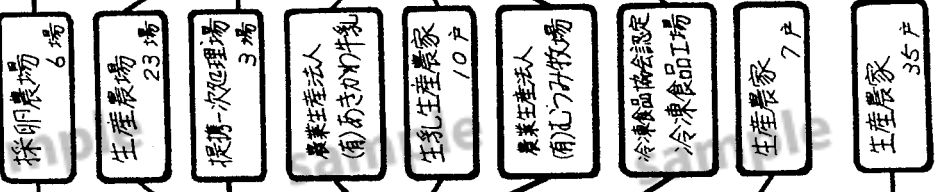 採卵農場
6場
生産農場
23場
提携一次処理場
3場
農業生産法人
(有)あきかわ牛乳
生乳生産農家
10戸
農業生産法人
(有)むつみ牧場
冷凍食品協会認定
冷凍食品工場
生産農家
7戸
生産農家
35戸
sample
sample